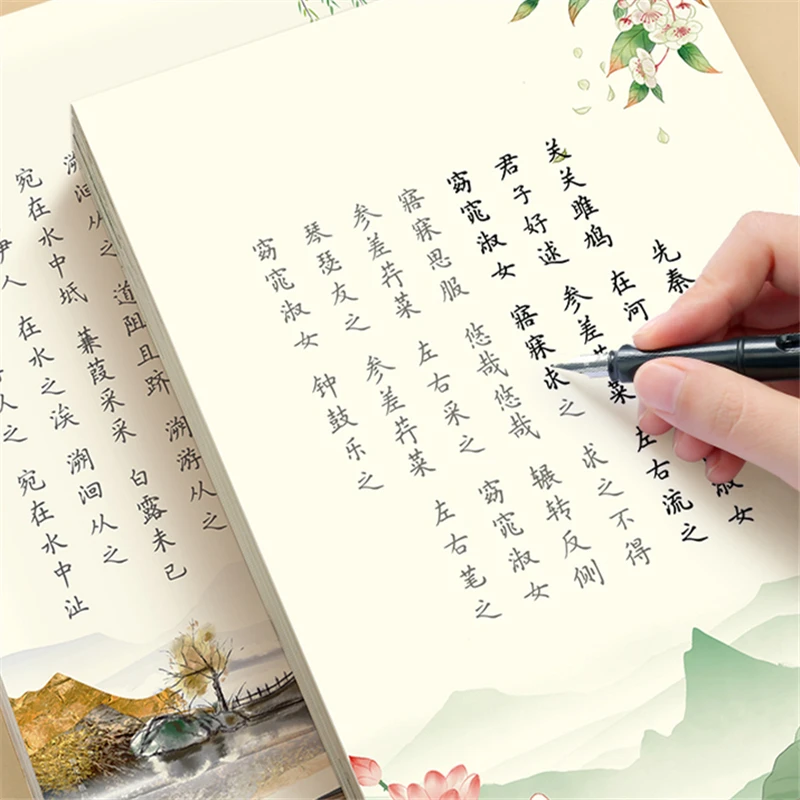 先秦
关关雎鸠 在河 淑女
君子好逑 参差 菜 左右流之
窈窕淑女 寤寐求之 求之不得
寤寐思服 悠哉悠哉 辗转反侧
参差荇菜 左右采之 窈窕淑女
琴瑟友之 参差荇菜 左右芼之
窈窕淑女 钟鼓乐之
溯洄从之 道阻且跻 溯游从之
宛在水中坻 蒹葭采采 白露未已
伊人 在水之涘 溯洄从之
从之 宛在水中沚